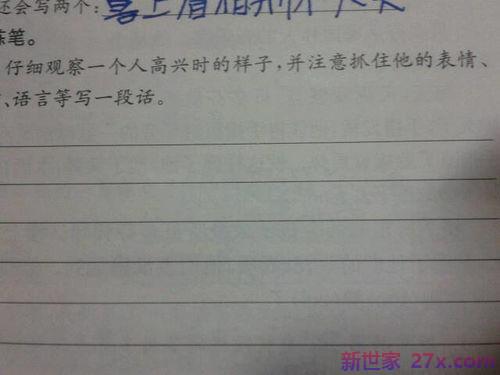 还会写两个：喜上眉梢
练笔。
仔细观察一个人高兴时的样子，并注意抓住他的表情、
、语言等写一段话。
新世家 27x.com